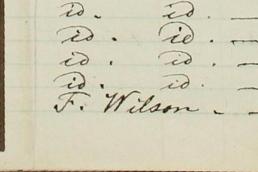 id. id. —
id. id. —
id. id. —
id. id. —
F. Wilson - —